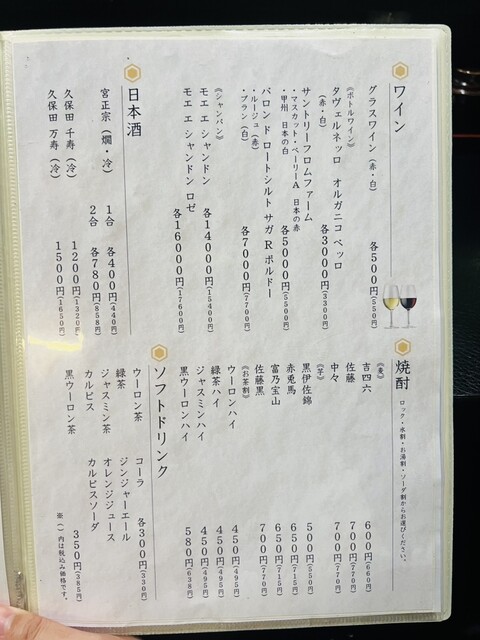 ワイン
グラスワイン（赤・白） 各500円（550円）
《ボトルワイン》
タヴェルネッロ オルガニコ ペッロ
（赤・白） 各3000円（3300円）
サントリーフロムファーム
・マスカット・ベーリーA 日本の赤
・甲州 日本の白 各5000円（5500円）
バロン ド ロートシルト サガ R ボルドー
・ルージュ（赤）
・ブラン（白） 各7000円（7700円）
《シャンパン》
モエ エ シャンドン 各14000円（15400円）
モエ エ シャンドン ロゼ 各16000円（17600円）
日本酒
宮正宗（燗・冷） 1合 各400円（440円）
2合 各780円（858円）
久保田 千寿（冷） 1200円（1320円）
久保田 万寿（冷） 1500円（1650円）
焼酎
ロック・水割・お湯割・ソーダ割からお選びください。
《麦》
吉四六 600円（660円）
佐藤 700円（770円）
中々 700円（770円）
《芋》
黒伊佐錦 500円（550円）
赤兎馬 650円（715円）
富乃宝山 650円（715円）
佐藤黒 700円（770円）
《お茶割》
ウーロンハイ 450円（495円）
緑茶ハイ 450円（495円）
ジャスミンハイ 450円（495円）
黒ウーロンハイ 580円（638円）
ソフトドリンク
ウーロン茶 コーラ 各300円（330円）
緑茶 ジンジャーエール
ジャスミン茶 オレンジジュース
カルピス カルピスソーダ
黒ウーロン茶 350円（385円）
※（）内は税込み価格です。